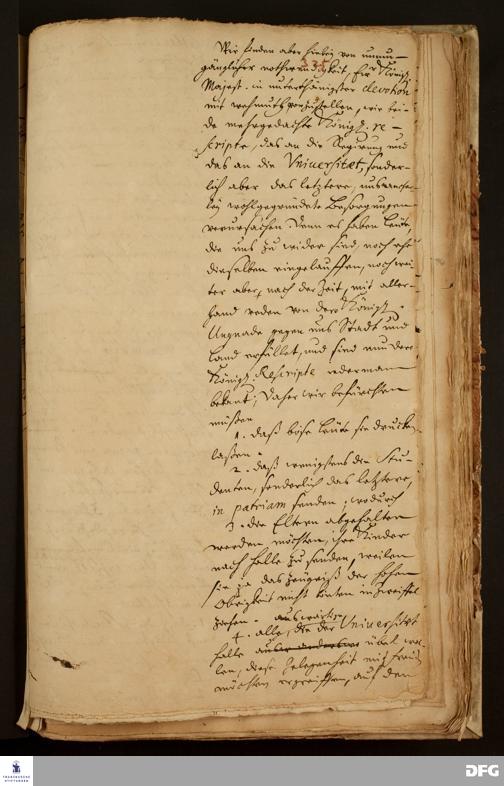 Wir finden aber hiebey von unum-
gänglicher nothwendigkeit, Ew. Königl.
335
Majest. in unterthänigster devotion
mit wehmuth vorzustellen, wie bei-
de mehrgedachte Königl. re-
scripte, das an die Regirung und
das an die Universitæt, sonder-
lich aber das letztere, uns mancher-
ley wohlgegründete Besorgungen
verursachen. Denn es haben Leute,
die uns zu wider sind, noch ehe
dieselben eingelauffen, noch wei-
ter aber, nach der Zeit, mit aller-
hand reden von der Königl.
Ungnade gegen uns Stadt und
Land erfüllet, und sind nun dero
Königl. Rescripte iederman
bekant; Daher wir befürchten
müssen
1. daß böse Leute sie drucken
laßen.
2. daß wenigstens die Stu-
denten, sonderlich das letztere,
in patriam senden, wodurch
3. die Eltern abgehalten
werden möchten, ihre Kinder
nach Halle zu senden, weilen
sie das Zeugniß der hohen
Obrigkeit nicht könten in zweiffel
ziehen.
4. alle auswärtige, die der Universität
Halle übel wol-
len, diese Gelegenheit mit freud
möchten ergreiffen, auf den
FRANCKESCHE STIFTUNGEN
DFG